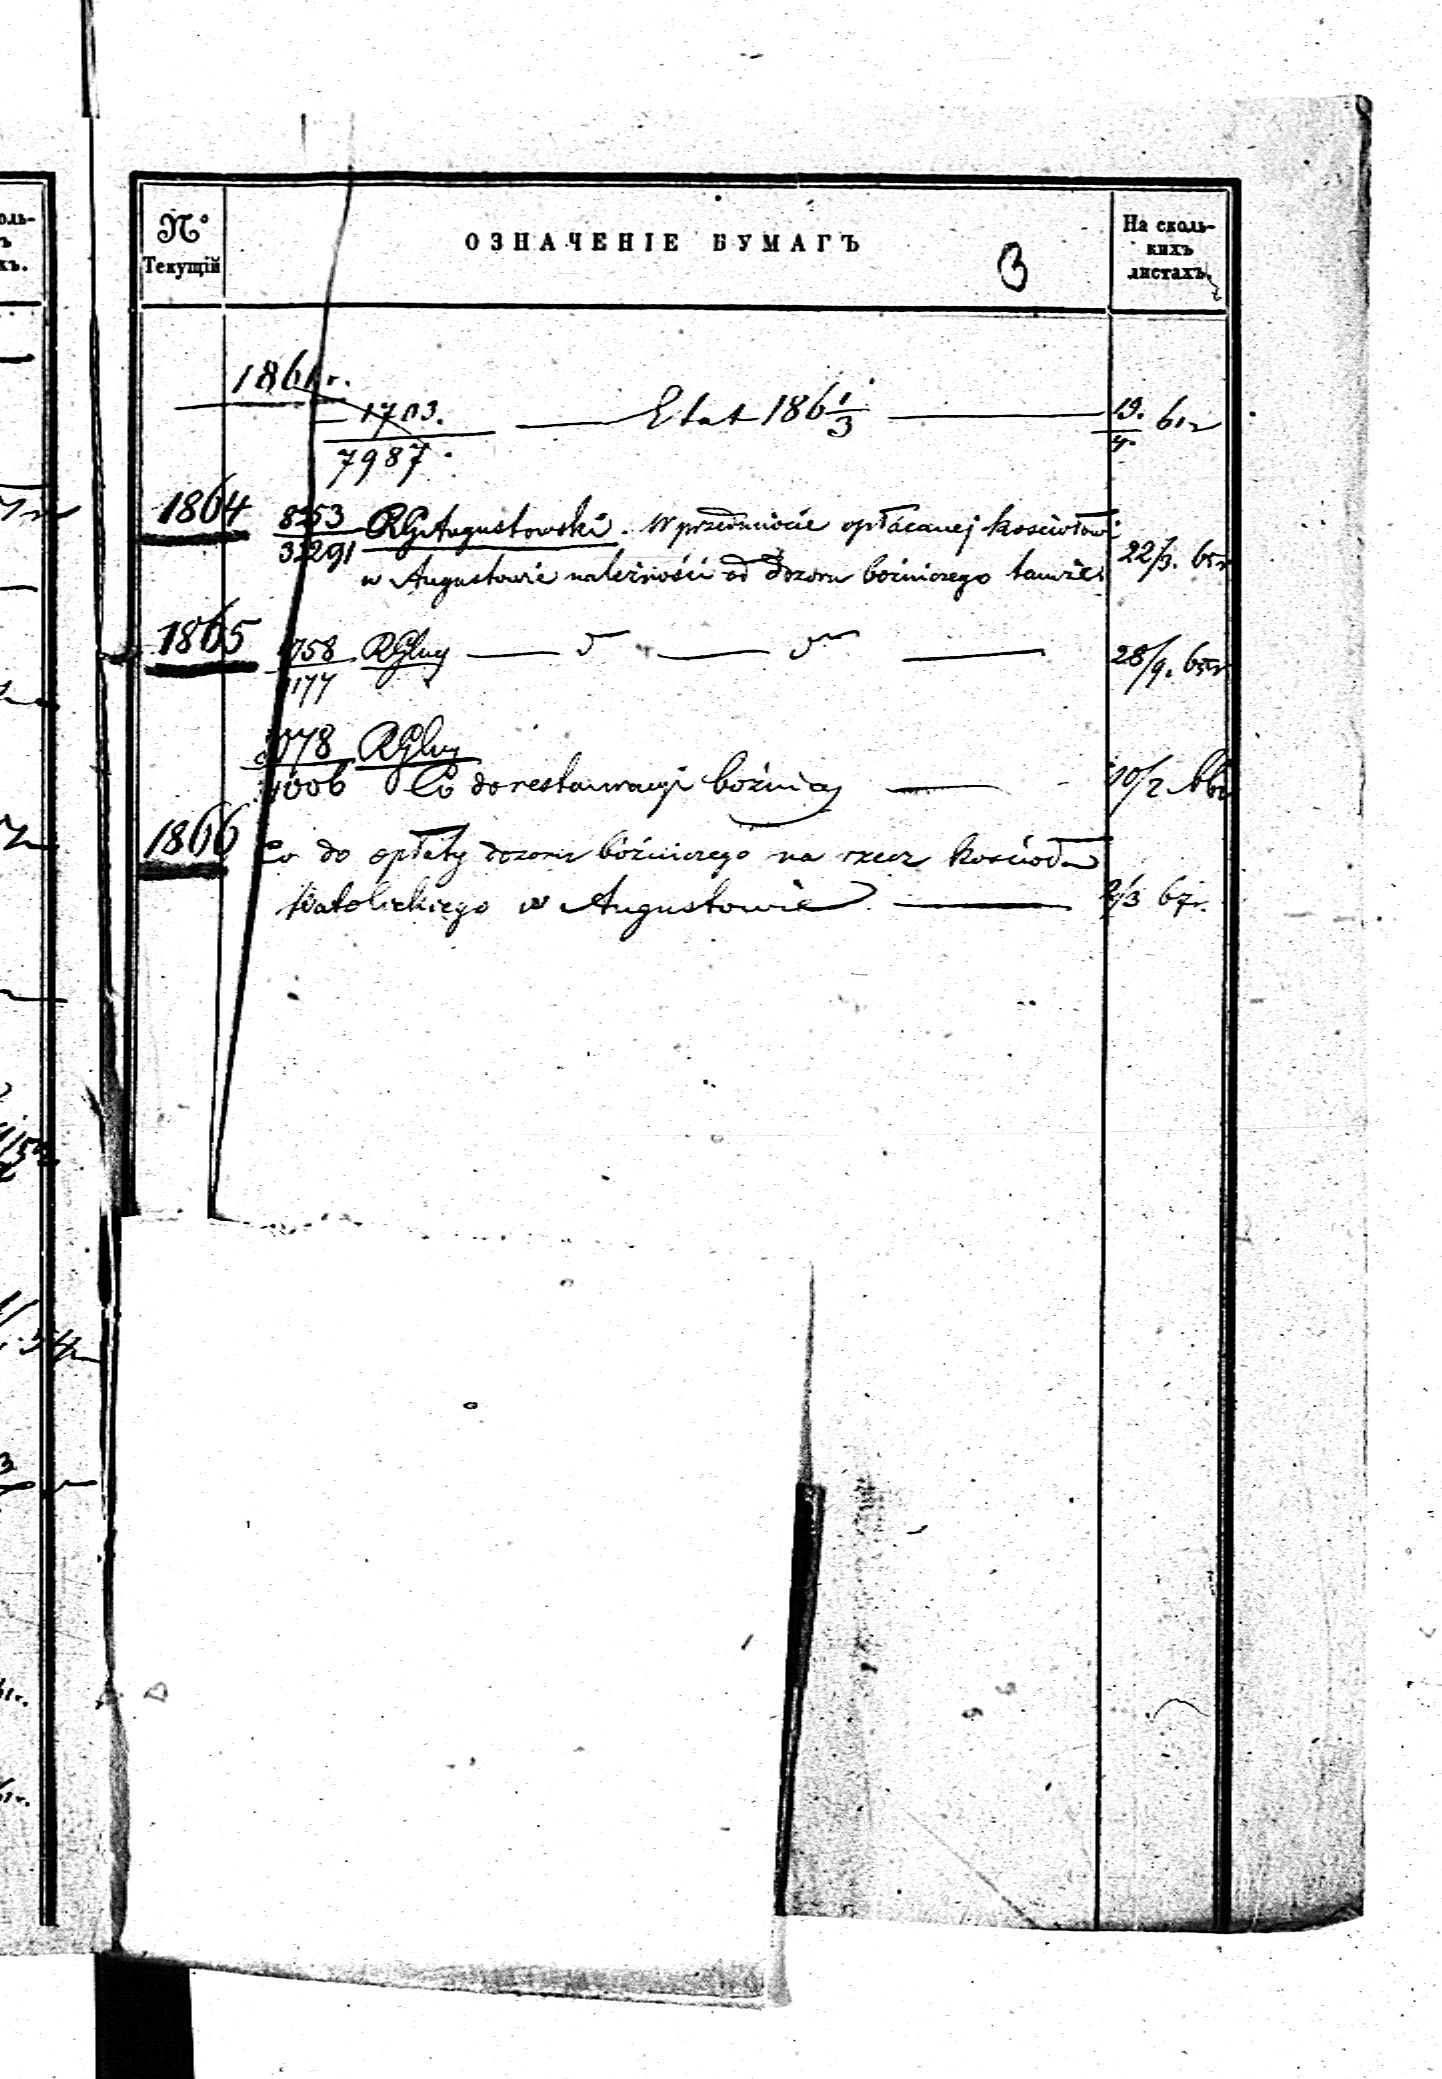 №
Текущій
ОЗНАЧЕНІЕ БУМАГЪ
3
На сколь-
кихъ
листахъ.
1861 r.
1703.
7987.
Etat 186 1/3
19.
4.
61 r
1864
8253
31291
RGAugustowski. W przedmiocie opłacanej kościołowi
w Augustowie należności od dozoru bóżniczego tamże
22/3. 65 r
1865
1758
1177
RGlny
28/9. 65 r
78
4006
RGlny
Co do restauracyi bóżnicy
10/2 66
1866
Co do opłaty dozoru bóżniczego na rzecz kościoła
Katolickiego w Augustowie
2/3 67 r.